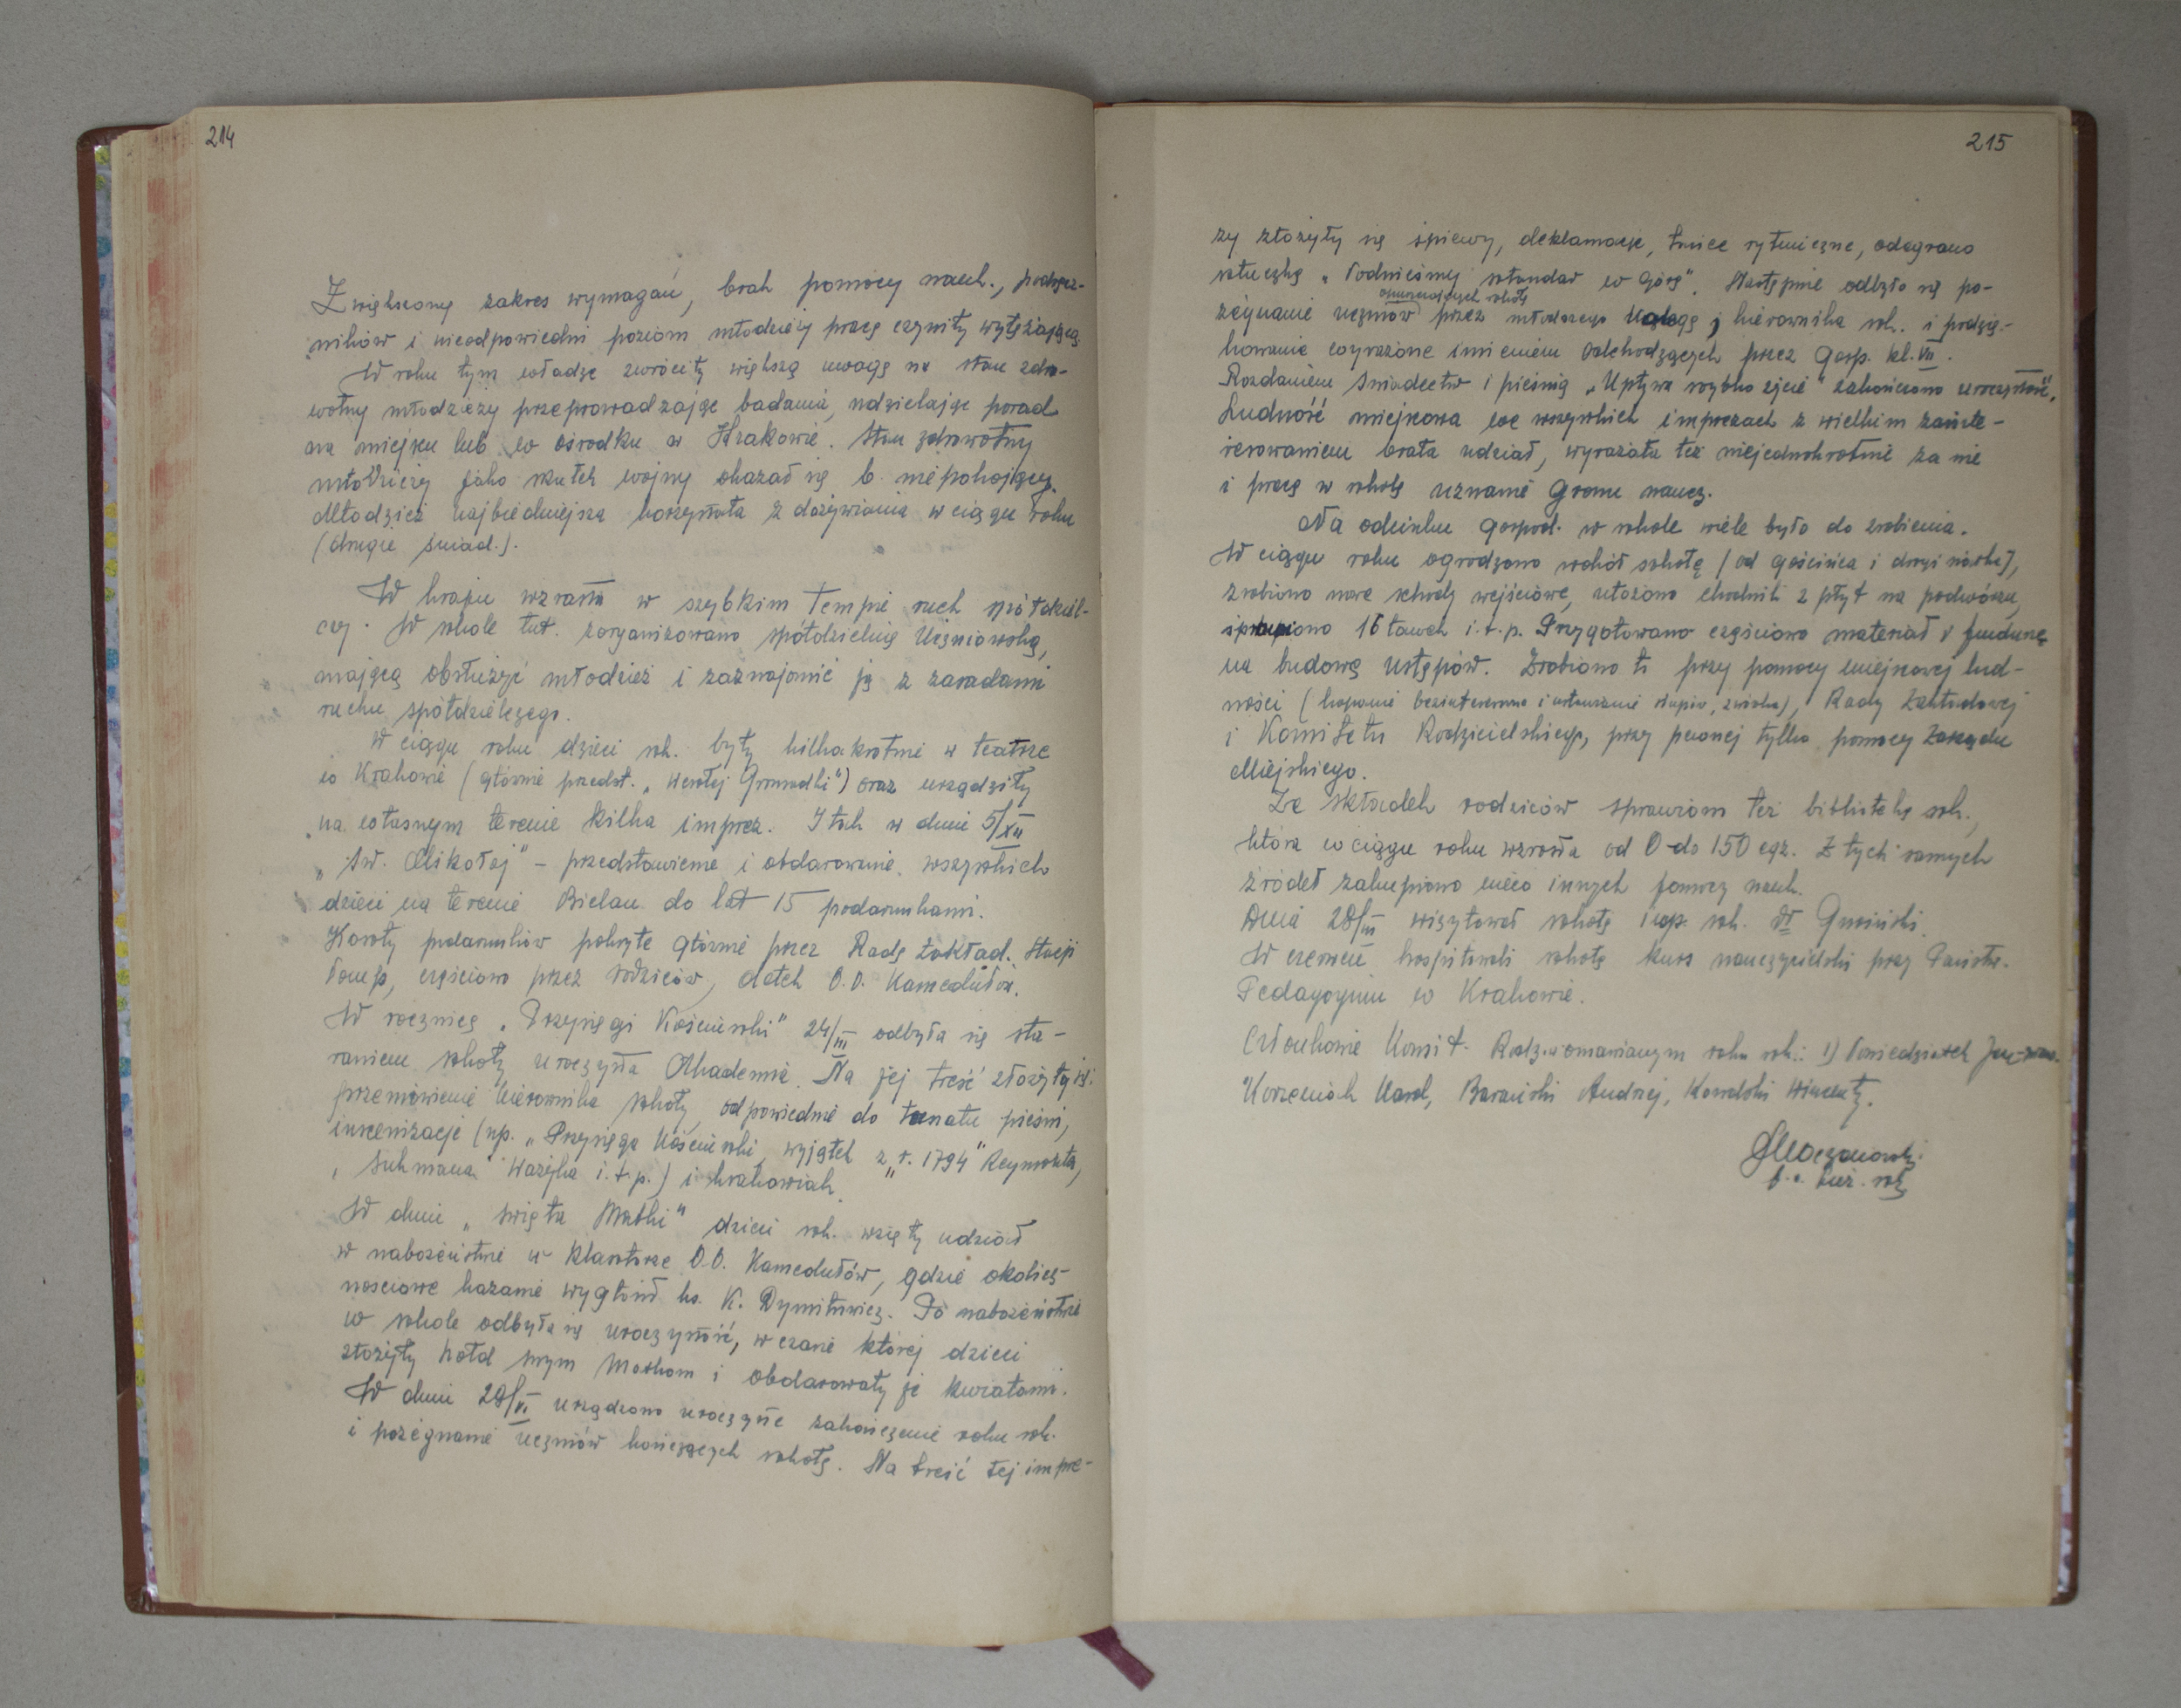 214
Zwiększony zakres wymagań, brak pomocy nauk., podręcz-
ników i nieodpowiedni poziom młodzieży pracę czyniły wytężającą.
W roku tym władze zwróciły większą uwagę na stan zdro-
wotny młodzieży przeprowadzając badania, udzielając porad
na miejscu lub w ośrodku w Krakowie. Stan zdrowotny
młodzieży jako skutek wojny okazał się b. niepokojący.
Młodzież najbiedniejsza korzystała z dożywiania w ciągu roku
(drugie śniad.).
W kraju wzrasta w szybkim tempie ruch spółdziel-
czy. W szkole tut. zorganizowano spółdzielnię Uczniowską,
mającą obsłużyć młodzież i zaznajomić ją z zasadami
ruchu spółdzielczego.
W ciągu roku dzieci szk. były kilkakrotnie w teatrze
w Krakowie (głównie przedst. „Wesołej Gromadki") oraz urządziły
na własnym terenie kilka imprez. I tak w dniu 5/XII
„Św. Mikołaj" – przedstawienie i obdarowanie wszystkich
dzieci na terenie Bielan do lat 15 podarunkami.
Koszty podarunków pokryte głównie przez Radę Zakład. Stacji
Pomp, częściowo przez rodziców, datek O.O. Kamedułów.
W rocznicę „Przysięgi Kościuszki" 24/III odbyła się sta-
raniem szkoły uroczysta Akademia. Na jej treść złożyły się:
przemówienie kierownika szkoły, odpowiednie do tematu pieśni,
inscenizacje (np. „Przysięga Kościuszki, wyjątek z „r. 1794" Reymonta,
„Sukmana" Ważyka i.t.p.) i krakowiak.
W dniu „Święta Matki" dzieci szk. wzięły udział
w nabożeństwie w klasztorze O.O. Kamedułów, gdzie okolicz-
nościowe kazanie wygłosił ks. K. Dymitrowicz. Po nabożeństwie
w szkole odbyła się uroczystość, w czasie której dzieci
złożyły hołd swym Matkom i obdarowały je kwiatami.
W dniu 28/VI urządzono uroczyste zakończenie roku szk.
i pożegnanie uczniów kończących szkołę. Na treść tej impre-
215
zy złożyły się śpiewy, deklamacje, tańce rytmiczne, odegrano
sztuczkę „Podnieśmy sztandar w górę". Następnie odbyło się po-
opuszczających szkołę
żegnanie uczniów przez młodszego kolegę i kierownika szk. i podzię-
kowanie wyrażone imieniem odchodzących przez gosp. kl. VII.
Rozdaniem świadectw i pieśnią „Upływa szybko życie" zakończono uroczystość.
Ludność miejscowa we wszystkich imprezach z wielkim zainte-
resowaniem brała udział, wyrażała też niejednokrotnie za nie
i pracę w szkole uznanie Gronu naucz.
Na odcinku gospod. w szkole wiele było do zrobienia.
W ciągu roku ogrodzono wokół szkołę (od gościńca i drogi siatką),
zrobiono nowe schody wejściowe, ułożono chodnik z płyt na podwórzu,
sprawiono 16 ławek i.t.p. Przygotowano częściowo materiał i fundusze
na budowę ustępów. Zrobiono to przy pomocy miejscowej lud-
ności (kopanie bezinteresowne i ustawianie słupów, zwózka), Rady Zakładowej
i Komitetu Rodzicielskiego, przy pewnej tylko pomocy Zarządu
Miejskiego.
Ze składek rodziców sprawiono też bibliotekę szk.,
która w ciągu roku wzrosła od 0 do 150 egz. Z tych samych
źródeł zakupiono nieco innych pomocy nauk.
Dnia 28/III wizytował szkołę insp. szk. Dr Gnoiński.
W czerwcu hospitował szkołę kurs nauczycielski przy Państw.
Pedagogium w Krakowie.
Członkowie Komit. Rodz. w omawianym roku szk.: 1) Poniedziałek
Korzeniak Karol, Barański Andrzej, Kowalski Wincenty.